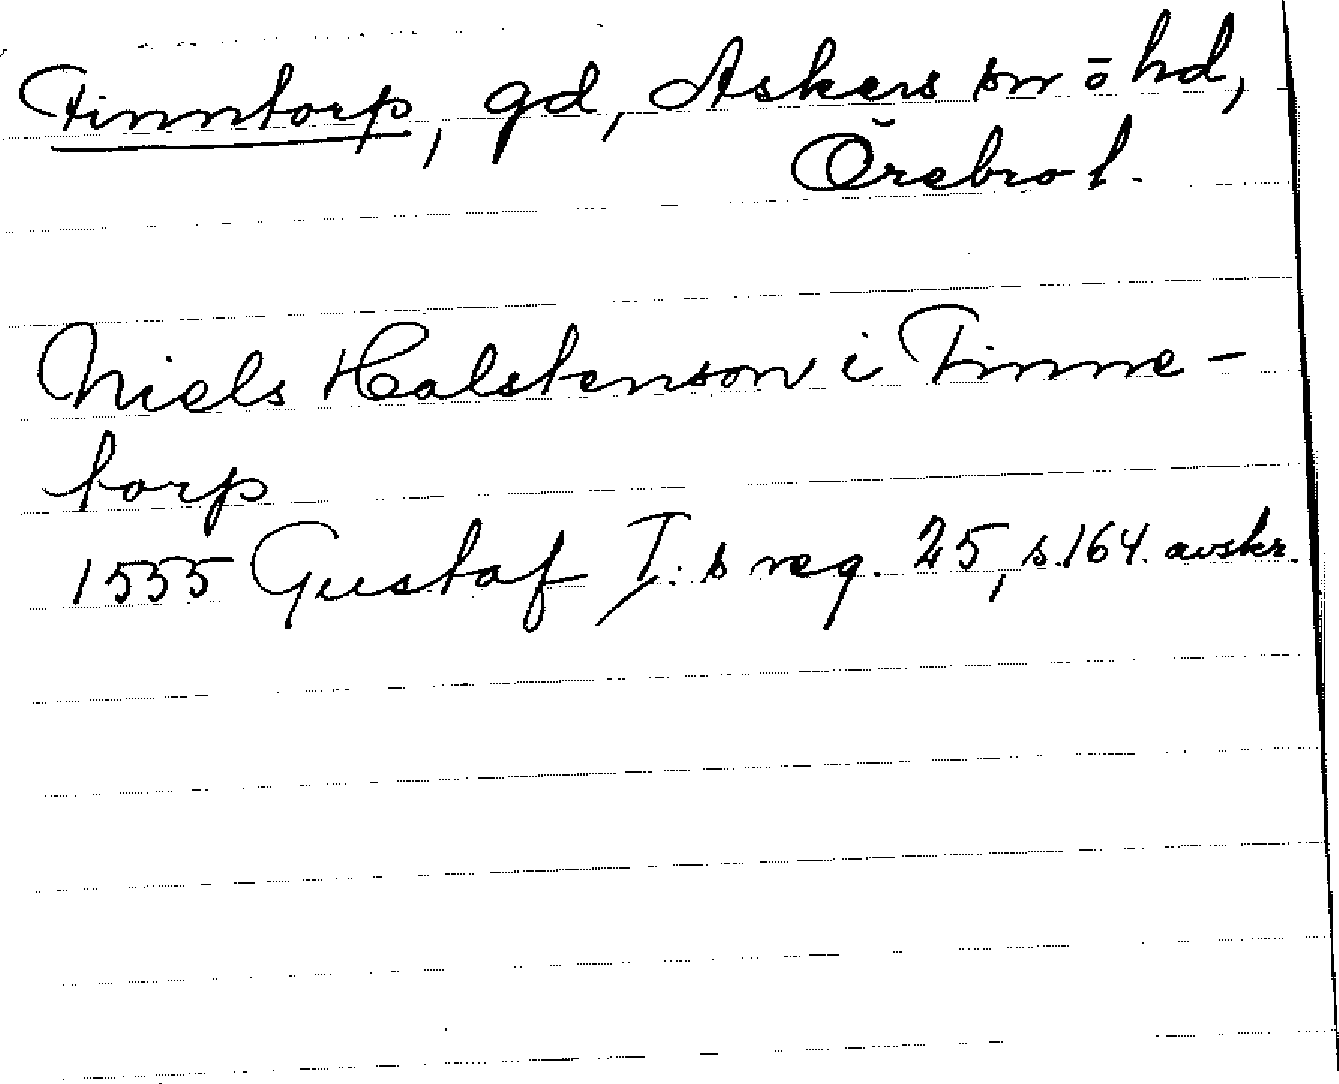 Finntorp, gd, Askers sn o hd,
Örebro l.
Niels Halstenson i Finne-
torp
1555 Gustaf I:s reg. 25, s.164. avskr.